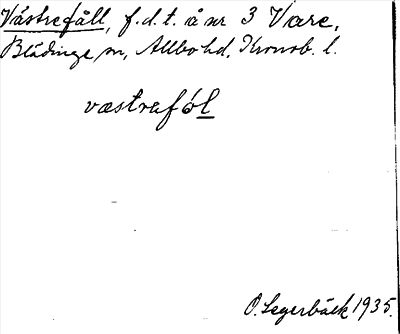 Västrefåll, f.d.t. å nr 3 Vare,
Blädinge sn, Allbo hd, Kronob. l.
væstrafól
O. Legerbäck 1935.